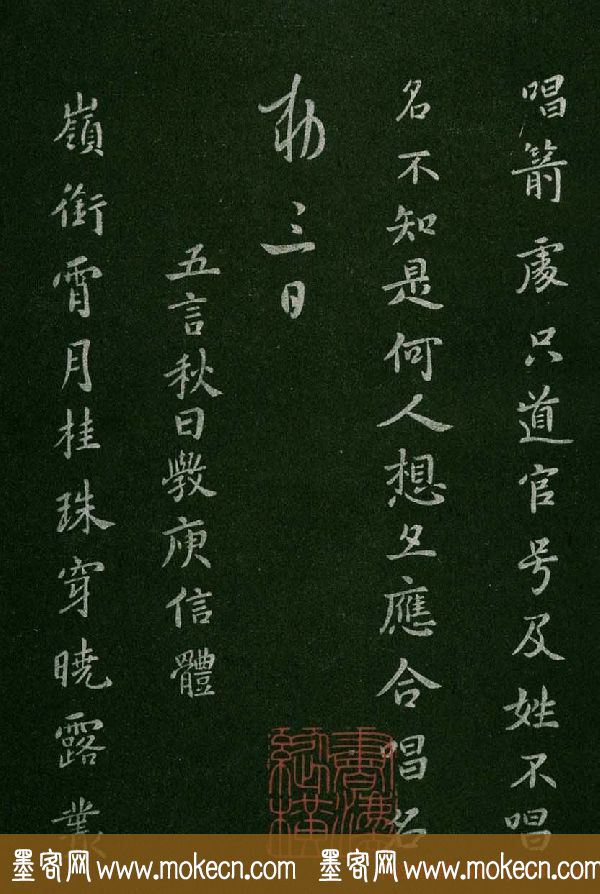 唱箭處只道官号及姓不唱
名不知是何人想應合唱名
勅三日
五言秋日斅庾信體
嶺銜霄月桂珠穿曉露叢
書法縱橫
墨客网 www.mokecn.com 墨客网 www.mokecn.com